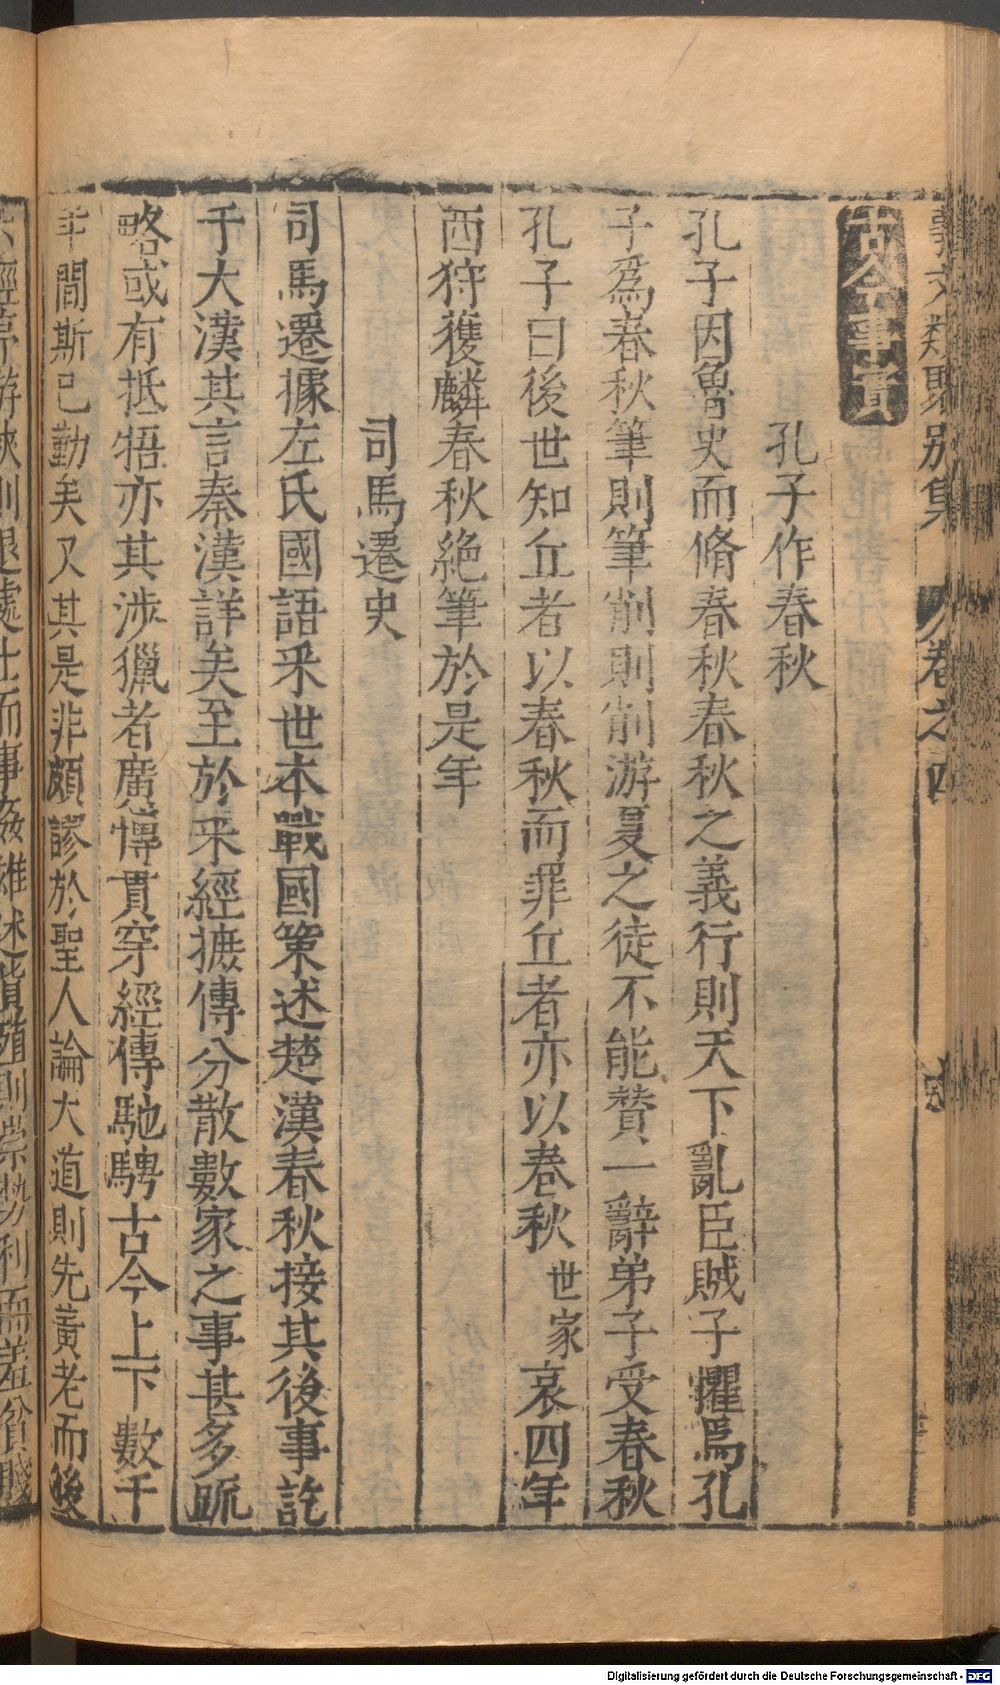 事文類聚別集 卷之四
古今事實
孔子作春秋
孔子因魯史而脩春秋春秋之義行則天下亂臣賊子懼焉孔
子爲春秋筆則筆削則削游夏之徒不能贊一辭弟子受春秋
孔子曰後世知丘者以春秋而罪丘者亦以春秋世家哀四年
西狩獲麟春秋絶筆於是年
司馬遷史
司馬遷據左氏國語采世本戰國策述楚漢春秋接其後事訖
于大漢其言秦漢詳矣至於采經摭傳分散數家之事甚多疏
略或有抵牾亦其涉獵者廣愽貫穿經傳馳騁古今上下數千
年間斯已勤矣又其是非頗謬於聖人論大道則先黃老而後
六經序游俠則退處士而事姦雄述貨殖則崇勢利而羞貧賤
Digitalisierung gefördert durch die Deutsche Forschungsgemeinschaft - DFG